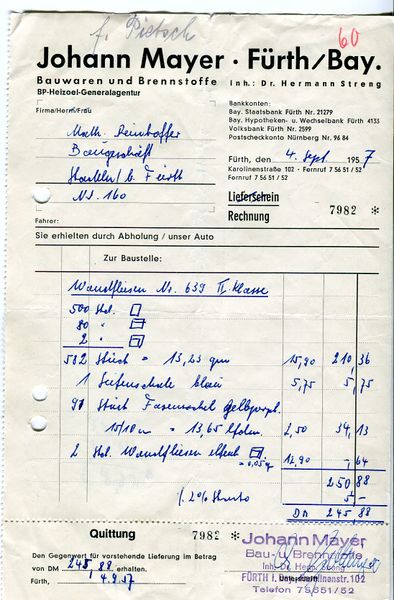 f. Pietsch
60
Johann Mayer · Fürth/Bay.
Bauwaren und Brennstoffe Inh.: Dr. Hermann Streng
BP-Heizoel-Generalagentur
Bankkonten:
Bay. Staatsbank Fürth Nr. 21279
Bay. Hypotheken- u. Wechselbank Fürth 4135
Volksbank Fürth Nr. 2599
Postscheckkonto Nürnberg Nr. 96 84
Firma/Herrn/Frau
Math.
Baugeschäft
b. Fürth
Nr. 160
Fürth, den 4. Sept. 1957
Karolinenstraße 102 · Fernruf 7 56 51 / 52
Fernruf 7 56 51 / 52
Lieferschein
Rechnung 7982 *
Fahrer:
Sie erhielten durch Abholung / unser Auto
Zur Baustelle:
Wandfliesen Nr. 639 II. Klasse
500 Stck.
80 "
2 "
582 Stück = 13,23 qm 15,90 210 36
1 Seifenschale blau 5,75 5,75
91 Stück
15/18 cm = 13,65 lfdm. 2,50 34,13
2 Stck. Wandfliesen elfenb.
= 0,05 qm 12,90 -,64
250 88
/. 2% Skonto 5 -
DM 245 88
Quittung 7982 *
Den Gegenwert für vorstehende Lieferung im Betrag
von DM 245,88 erhalten.
Fürth, 4.9.57
Johann Mayer
Bau- u. Brennstoffe
Inh. Dr. Herm. Streng
FÜRTH i. B., Karolinenstr. 102
Telefon 75651/52
Unterschrift